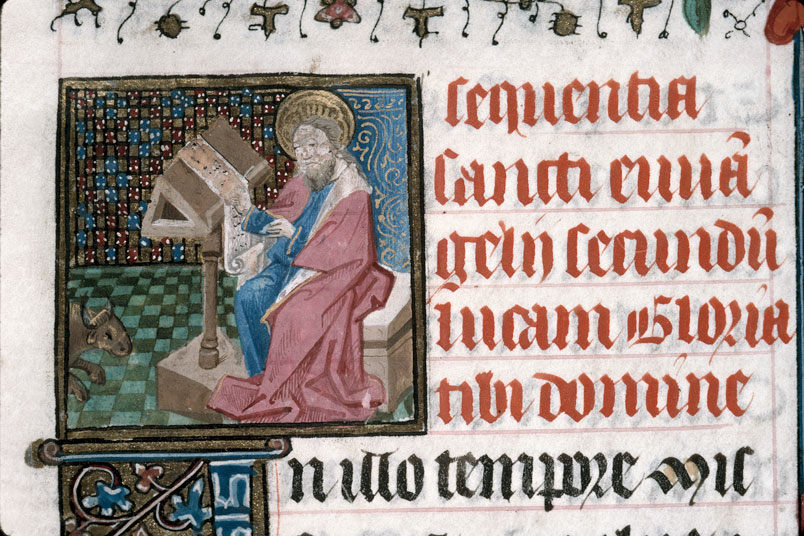 sequentia
sancti euuā
gelij secundū
lucam Gloria
tibi domine
n illo tempore mis